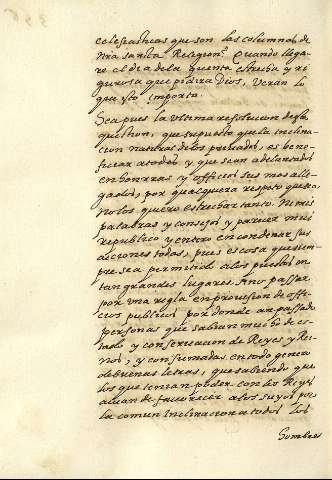 celesiasticas que son las columnas de
nr̃a santa Religion. Quando llega
re el dia de la quenta estrecha y ri
gurosa que pedira Dios, veran lo
que esto importa.
Sea pues la ultima resolucion desta
question, que supuesto que la inclina
cion natural de los privados, es bene
ficiar a todos y que sean adelantados
en honrras y officios sus mas alle
gados, por qualquiera respeto que sea
no los quiero estrechar tanto. Ni mis
palabras y consejos y parecer mui
republico y entero en condenar sus
acciones todas, pues es cosa que siem
pre sea permitido a los puestos en
tan grandes lugares. Sino passar
por una regla en provission de offi
cios publicos por donde an passado
personas que sabian mucho de es
tado y conservacion de Reyes y Rei
nos, y consumadas en todo genero
de buenas letras, que sabiendo que
los que tenian poder con los Reyes
avian de favorecer a los suyos por
la comun inclinacion a todos los
hombres